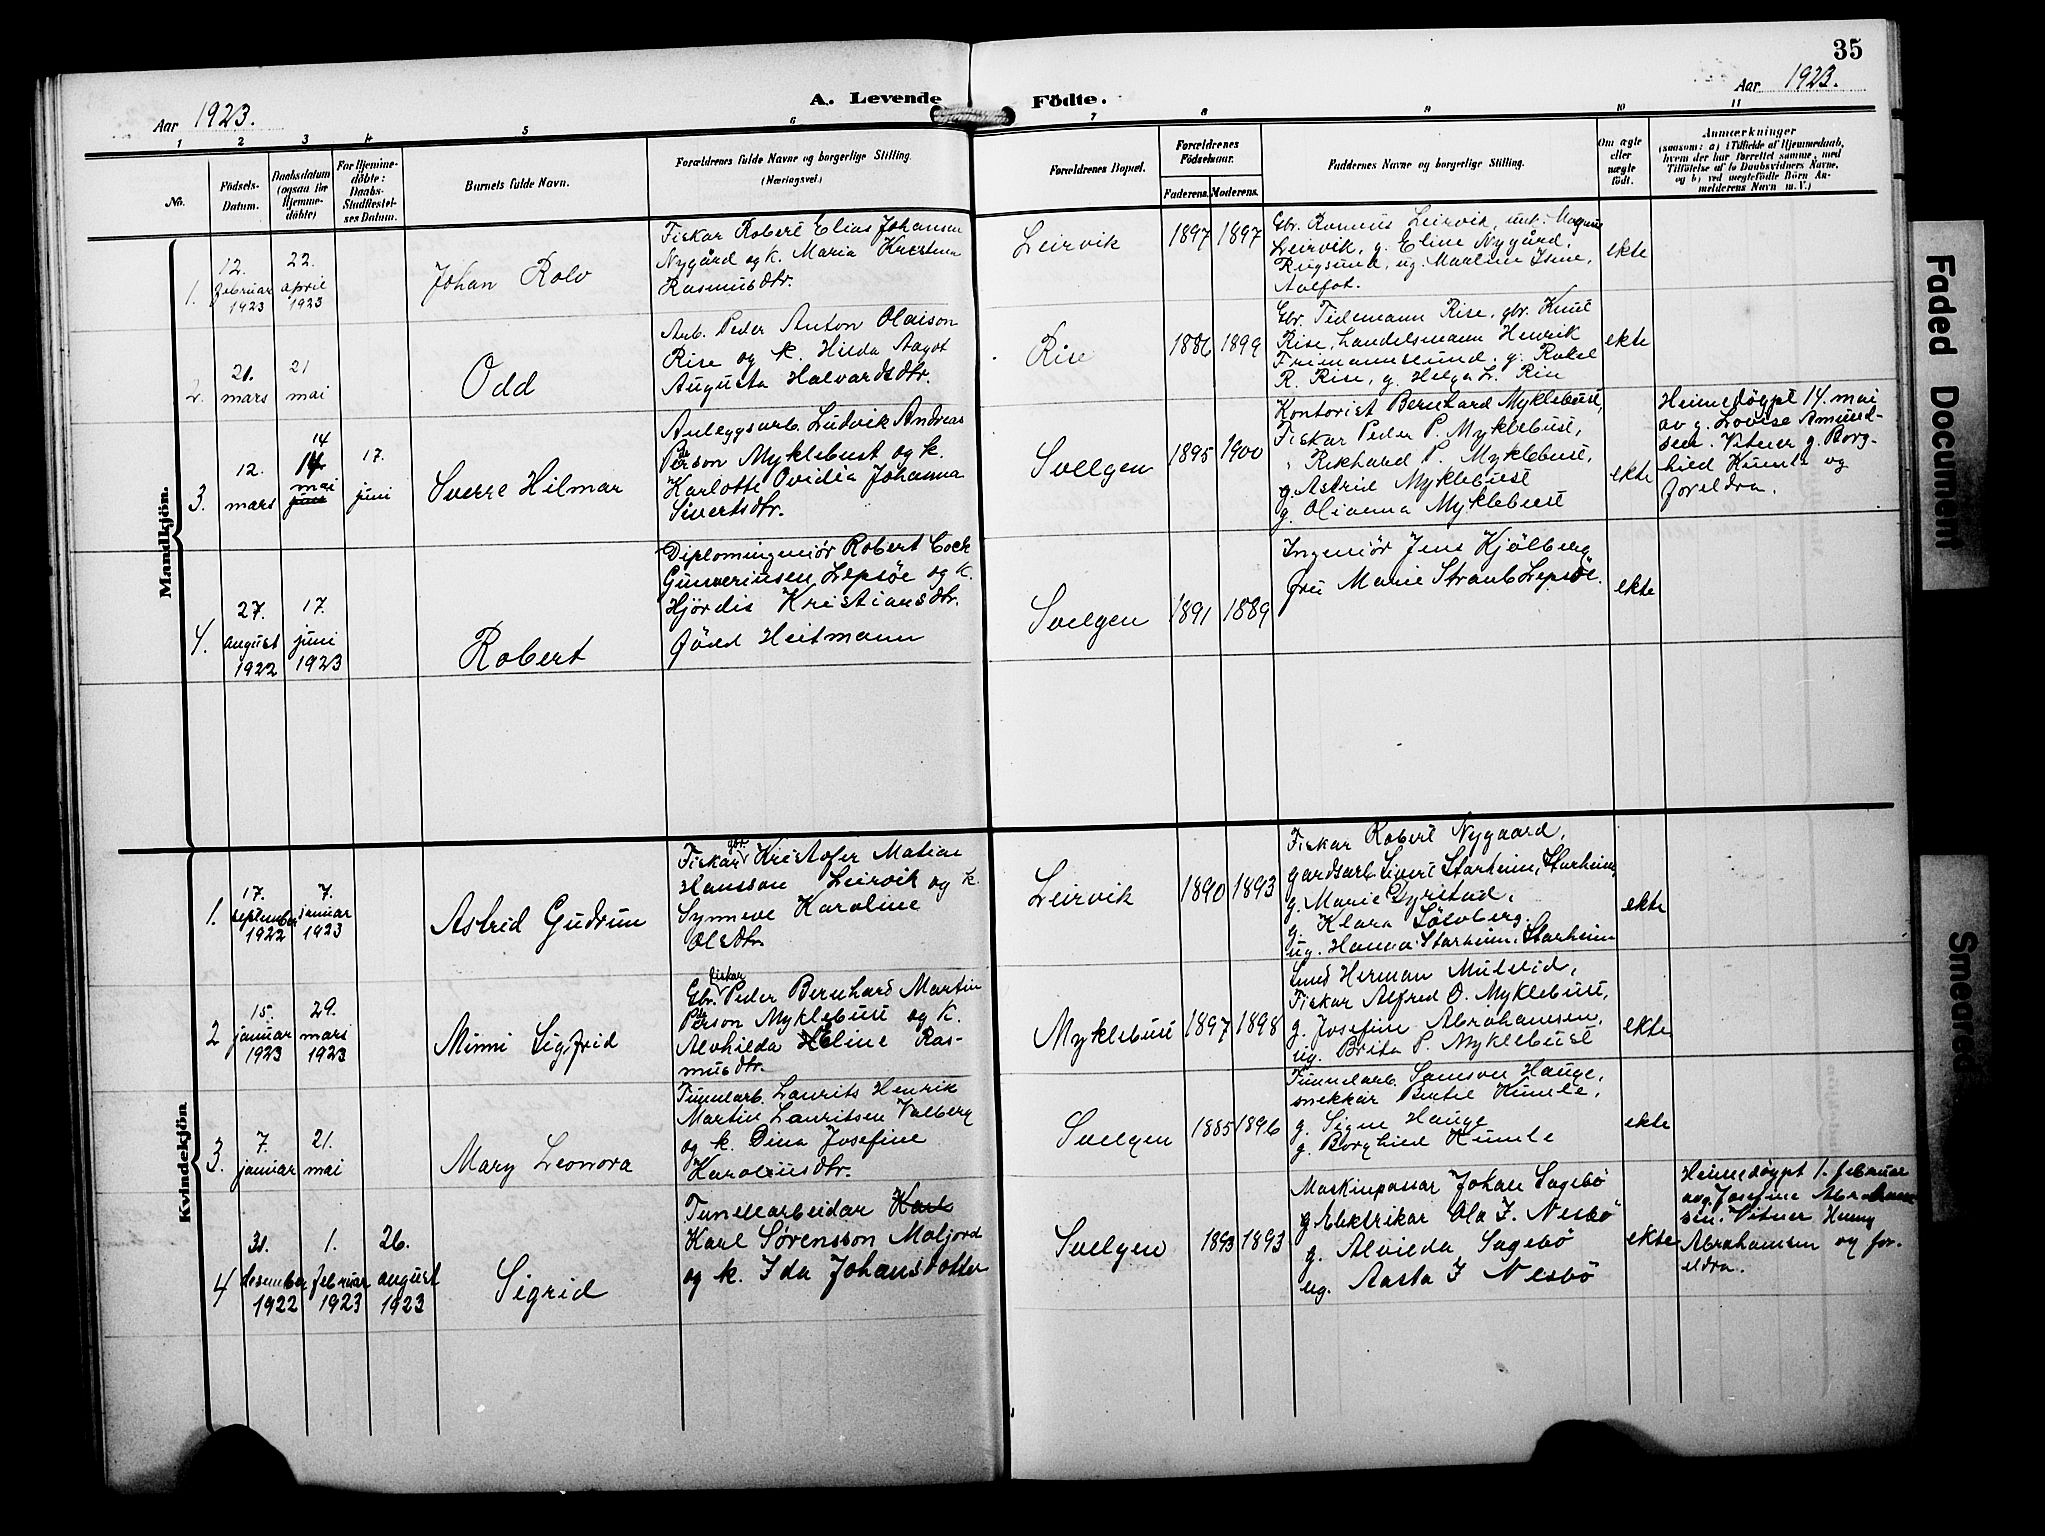 35
Aar 1923.
A. Levende Födte.
Aar 1923.
1 2 3 4 5 6 7 8 9 10 11
No.
Födsels-
Datum.
Daabsdatum
(ogsaa for
Hjemme-
döbte)
For Hjemme-
döbte:
Daabs-
Stadfestel-
ses Datum.
Barnets fulde Navn.
Forældrenes fulde Navne og borgerlige Stilling.
(Næringsvei.)
Forældrenes Bopæl.
Forældrenes
Födselsaar.
Faderens. Moderens.
Faddernes Navne og borgerlige Stilling.
Om ægte
eller
uægte
født.
Anmærkninger
(saasom: a) i Tilfælde af Hjemmedaab,
hvem der har forrettet samme, med
Tilföielse af to Daabsvidners Navne,
og b) ved uægtefödte Börn An-
melderens Navn m. V.)
Mandkjön.
1.
12.
februar
1923
22.
april
1923
Johan Rolv
Fiskar Robert Elias Johansen
Nygård og k. Maria Kristina
Rasmusdtr.
Leirvik
1897 1897
Gbr. Rasmus Leirvik, unk. Magnus
Leirvik, g. Eline Nygård,
Rugsund, ug. Maaline Isene,
Aalfot.
ekte
2.
21.
mars
21
mai
Odd
Arb. Peder Anton Olaison
Rise og k. Hilda Aagot
Augusta Halvardsdtr.
Rise
1886 1899
Gbr. Tidemann Rise, gbr. Knut
Rise, Landelsmann Henrik
Frimannslund, g. Rakel
R. Rise, g. Helga L. Rise
ekte
3.
12.
mars
14
14
mai
juni
17.
juni
Sverre Hilmar
Anleggsarb. Ludvik Andreas
Person Myklebust og k.
Karlotte Ovidia Johanna
Sivertsdtr.
Svelgen
1895 1900
Kontorist Bernhard Myklebust,
Fiskar Peder P. Myklebust,
" Rikhard P. Myklebust,
g. Astrid Myklebust
g. Olianna Myklebust
ekte
Heimedøypt 14. mai
av g. Lovise Amund-
sen. Vitner g. Borg-
hild Kumle og
foreldra.
4.
27.
august
1922
17.
juni
1923
Robert
Diplomingeniør Robert Cock
Gunneriusen Lepsöe og k.
Hjördis Kristiansdtr.
född Heitmann
Svelgen
1891 1889
Ingeniör Jens Kjölberg
Fru Marie Straub Lepsöe.
ekte
Kvindekjön
1.
17.
september
1922
7.
januar
1923
Astrid Gudrun
Fiskar gbr. Kristofer Matias
Hansson Leirvik og k.
Synneve Karoline
Olsdtr.
Leirvik
1890 1893
Fiskar Robert Nygaard,
gardsarb. Sivert Starheim, Starheim,
g. Marie Dyrstad,
g. Klara Sölvberg.
ug. Hanna Starheim, Starheim
ekte
2
15.
januar
1923
29.
mars
1923
Minni Sigfrid
Gbr. fiskar Peder Bernhard Martin
Person Myklebust og k.
Alvhilda Eline Ras-
musdtr.
Myklebust
1897 1898
Smed Herman Mulelid,
Fiskar Alfred O. Myklebust,
g. Josefine Abrahamsen,
ug. Brita P. Myklebust
ekte
3.
7.
januar
21.
mai
Mary Leonora
Tunnelarb. Laurits Henrik
Martin Lauritsen Valberg
og k. Dina Josefine
Karoliusdtr.
Svelgen
1885 1896
Tunnelarb. Samson Hauge,
snekkar Bertel Kumle,
g. Signe Hauge
g. Borghild Kumle
ekte
4
31.
desember
1922
1.
februar
1923
26.
august
1923
Sigrid
Tunellarbeidar Karl
Karl Sørensson Moljord
og k. Ida Johansdotter
Svelgen
1893 1893
Maskinpassar Johan Sagebö
Elektrikar Ola I. Nesbö
g. Alvilda Sagebö
ug. Aasta I Nesbö
ekte
Heimedøypt 1. februar
av g. Josefine Abraham-
sen. Vitner Henny
Abrahamsen og for-
eldra.
Faded Document
Smeared